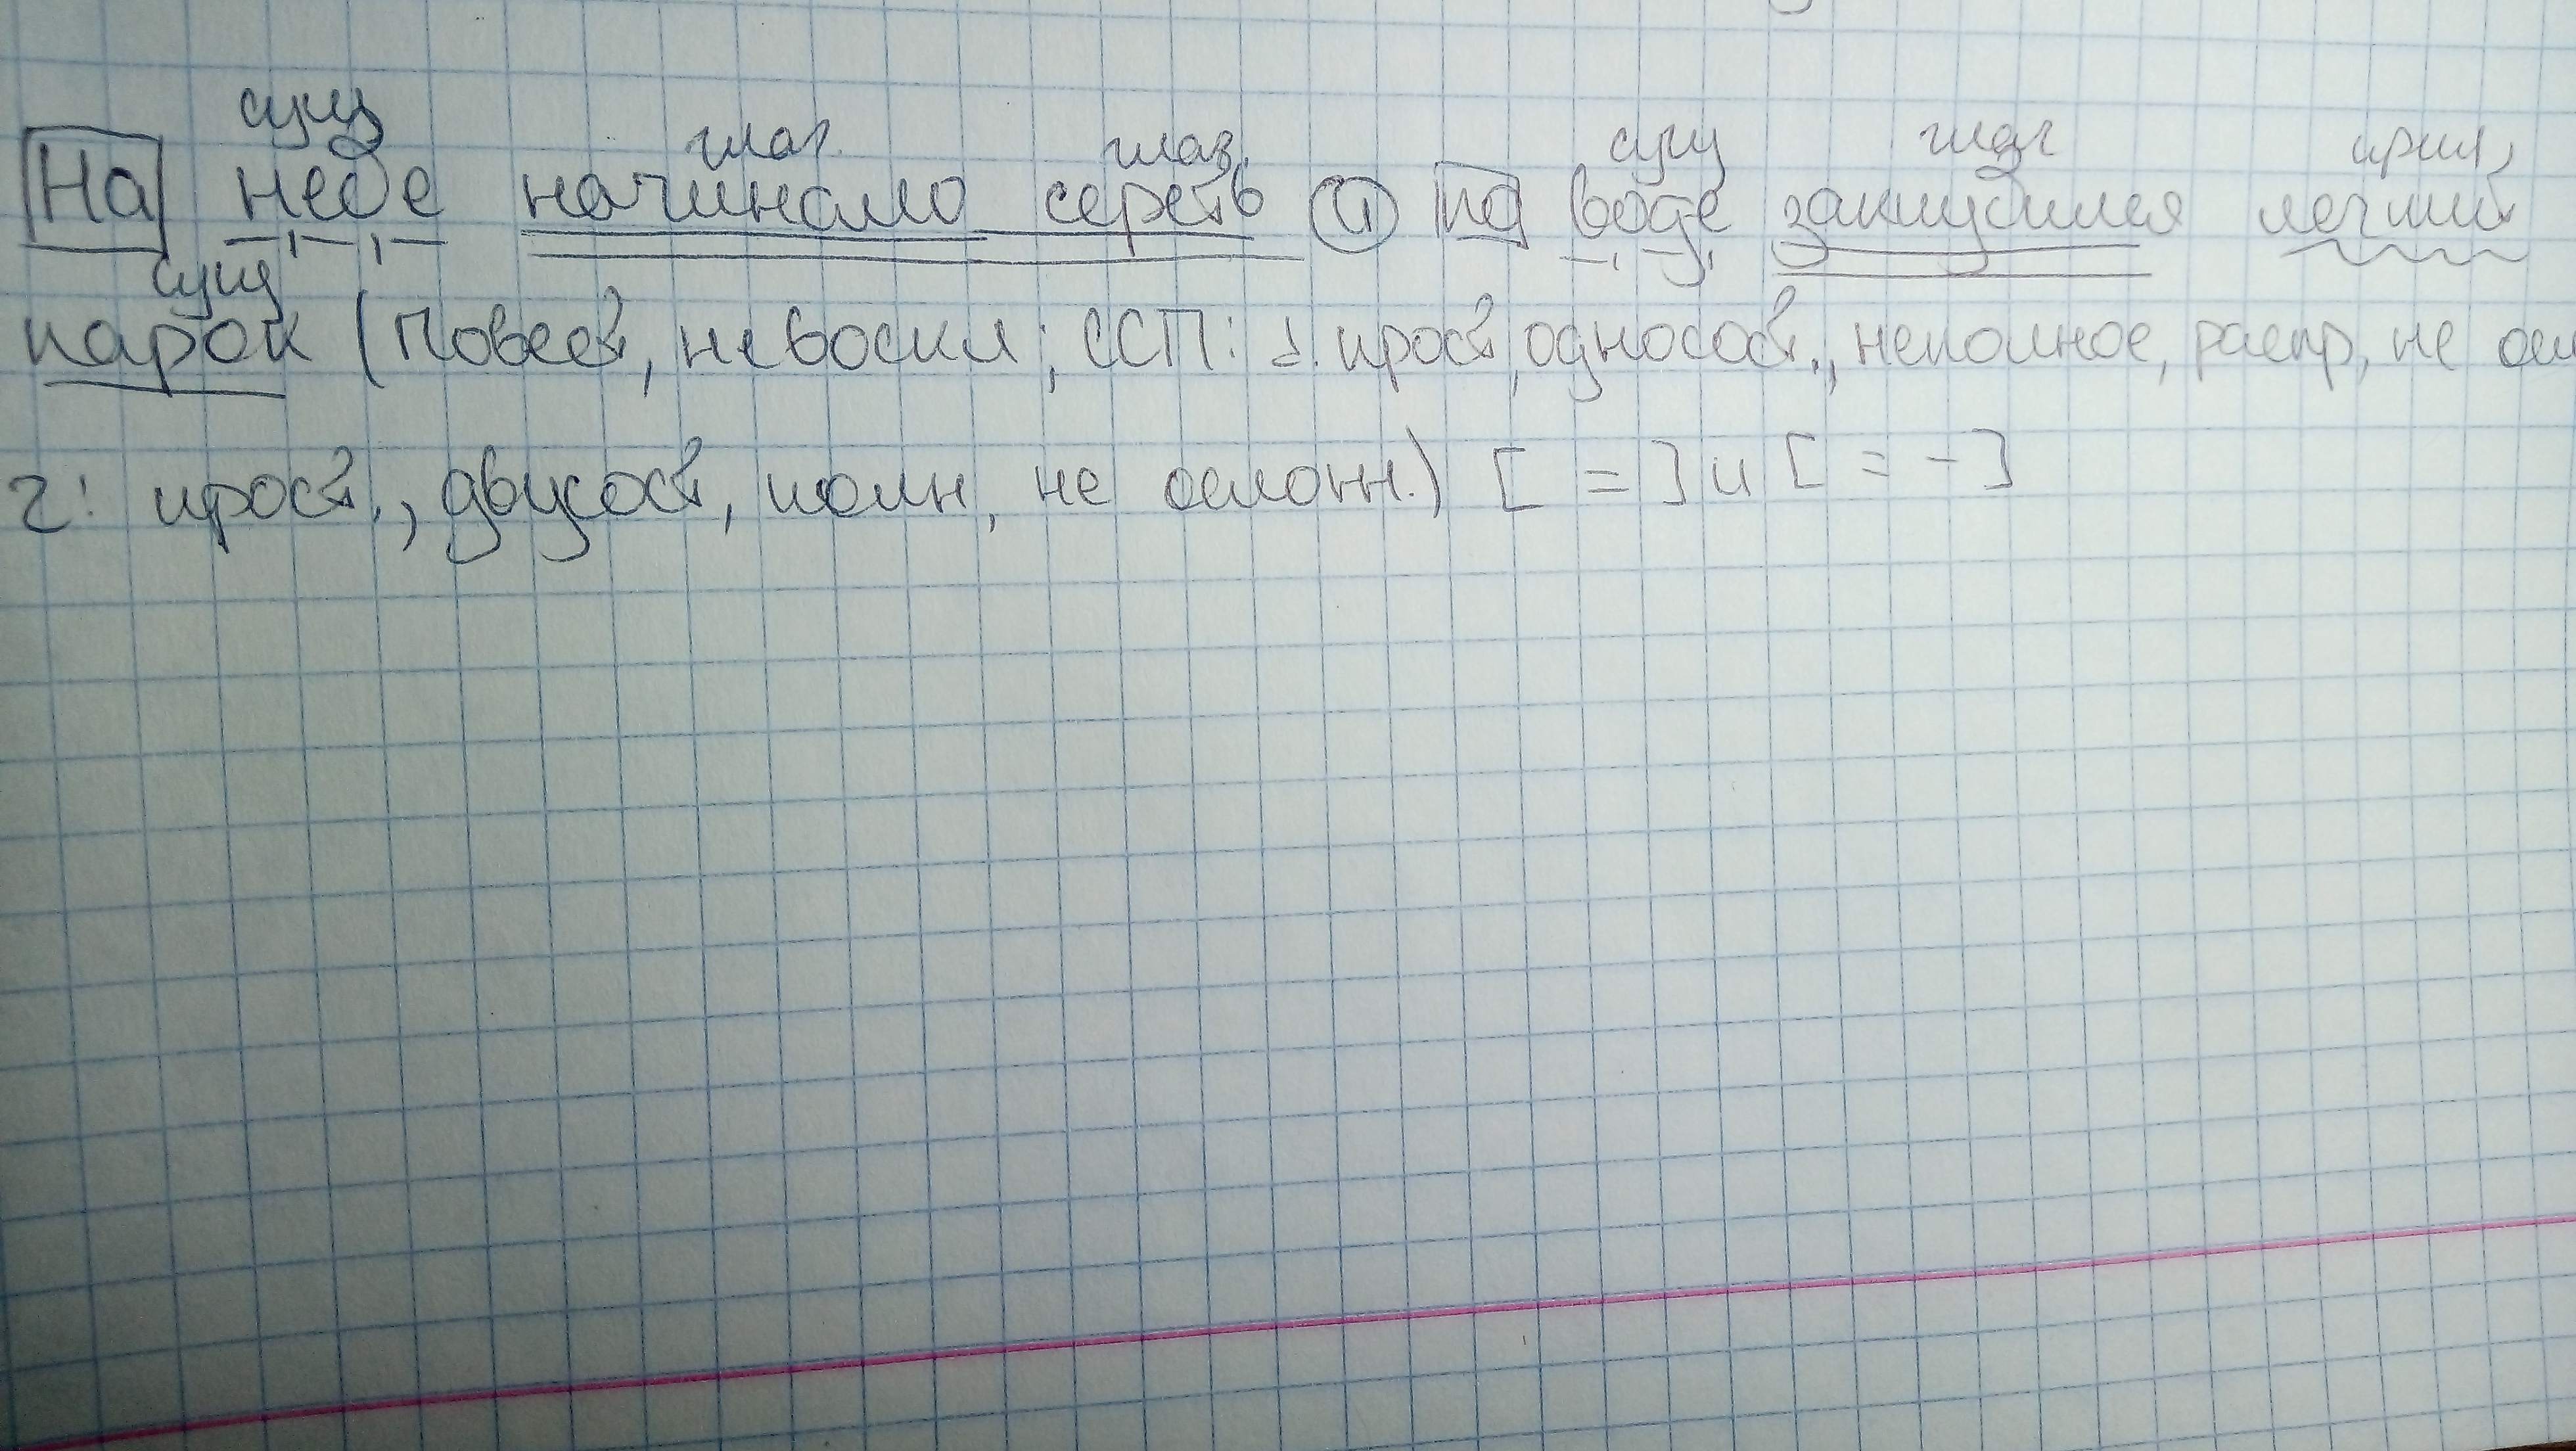 сущ глаг. глаг. сущ глаг прил,
На небе начинало сереть и на воде заклубился легкий
сущ
парок (Повест, невоскл; ССП: 1. прост, односост., неполное, распр, не осл
2: прост., двусост, полн, не ослонн.) [ = ] и [ = - ]